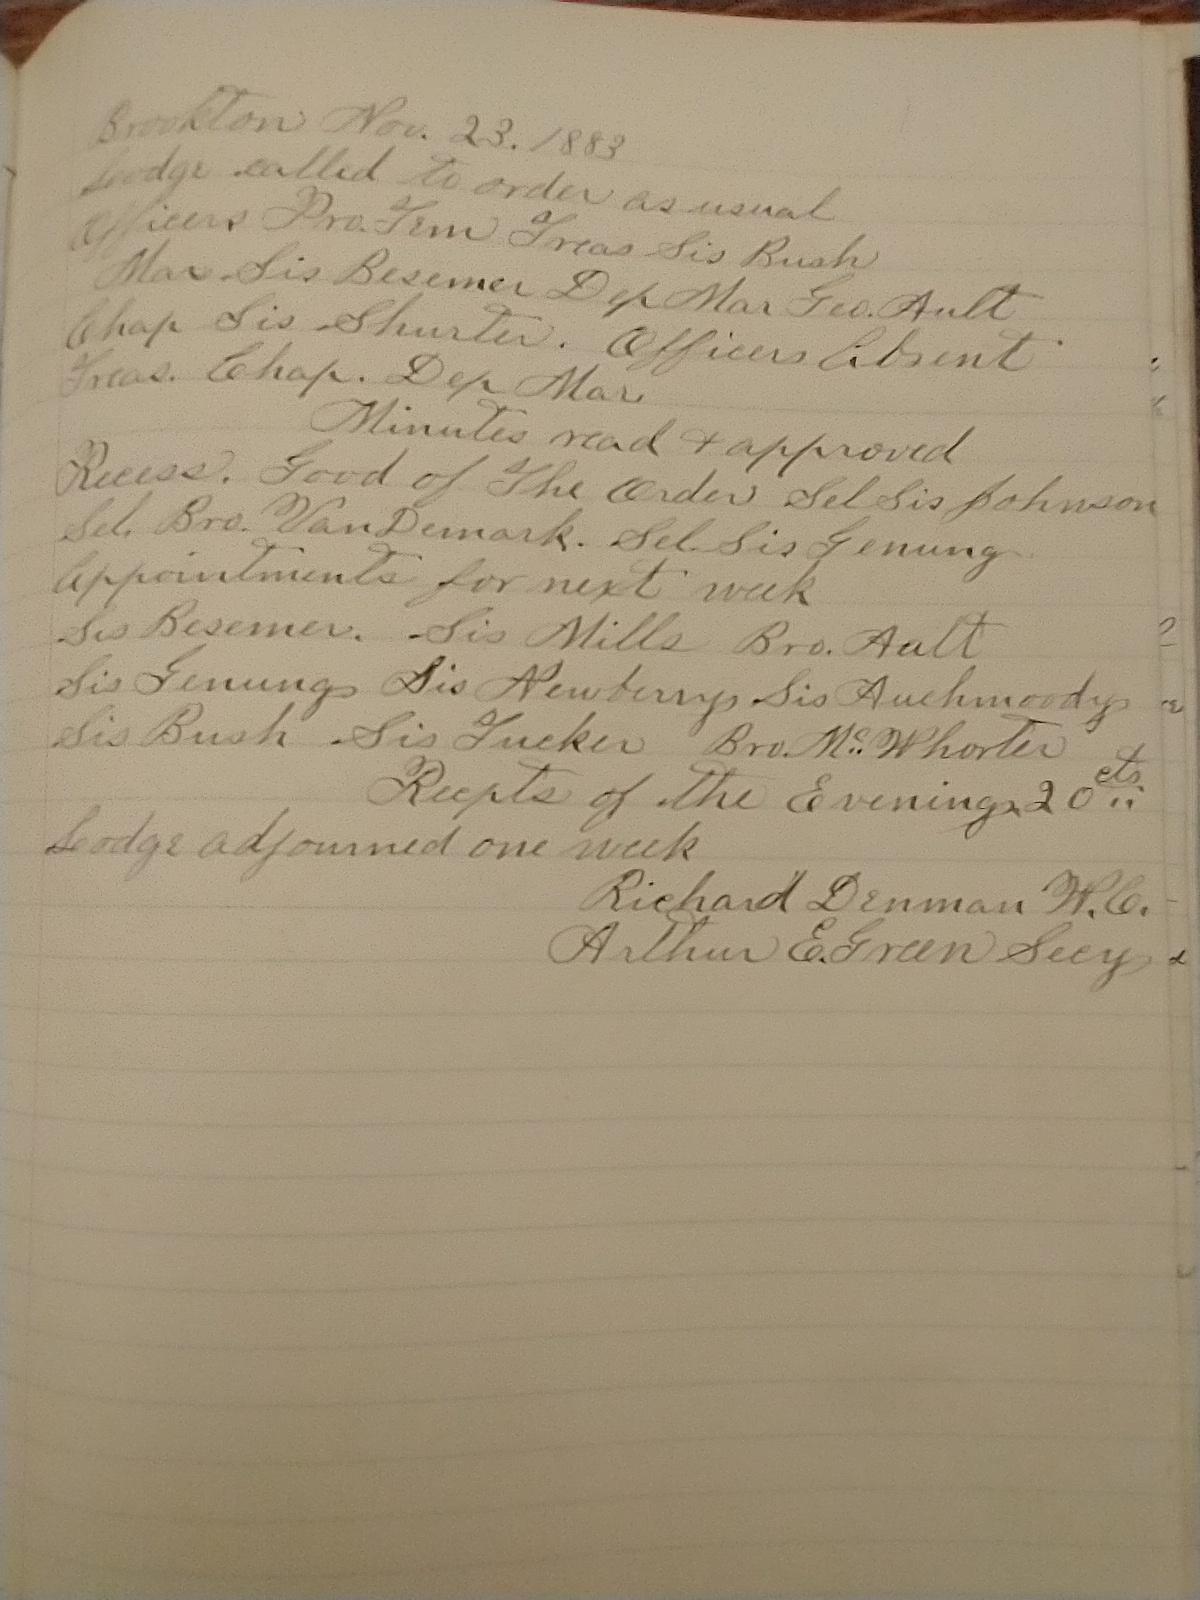 Brookton Nov. 23. 1883
Lodge called to order as usual
Officers Pro. Tem Treas Sis Bush
Mar. Sis Besemer Dep Mar Geo. Ault
Chap Sis Shurter. Officers Absent
Treas. Chap. Dep Mar.
Minutes read & approved
Recess. Good of The Order Sel Sis Johnson
Sel. Bro. VanDemark. Sel. Sis Genung
Appointments for next week
Sis Besemer. Sis Mills Bro. Ault
Sis Genung Sis Newberry Sis Auchmoody
Sis Bush Sis Tucker Bro. Mc. Whorter
Recpts of the Evening 20 cts
Lodge adjourned one week
Richard Denman W.C.
Arthur E. Green Secy